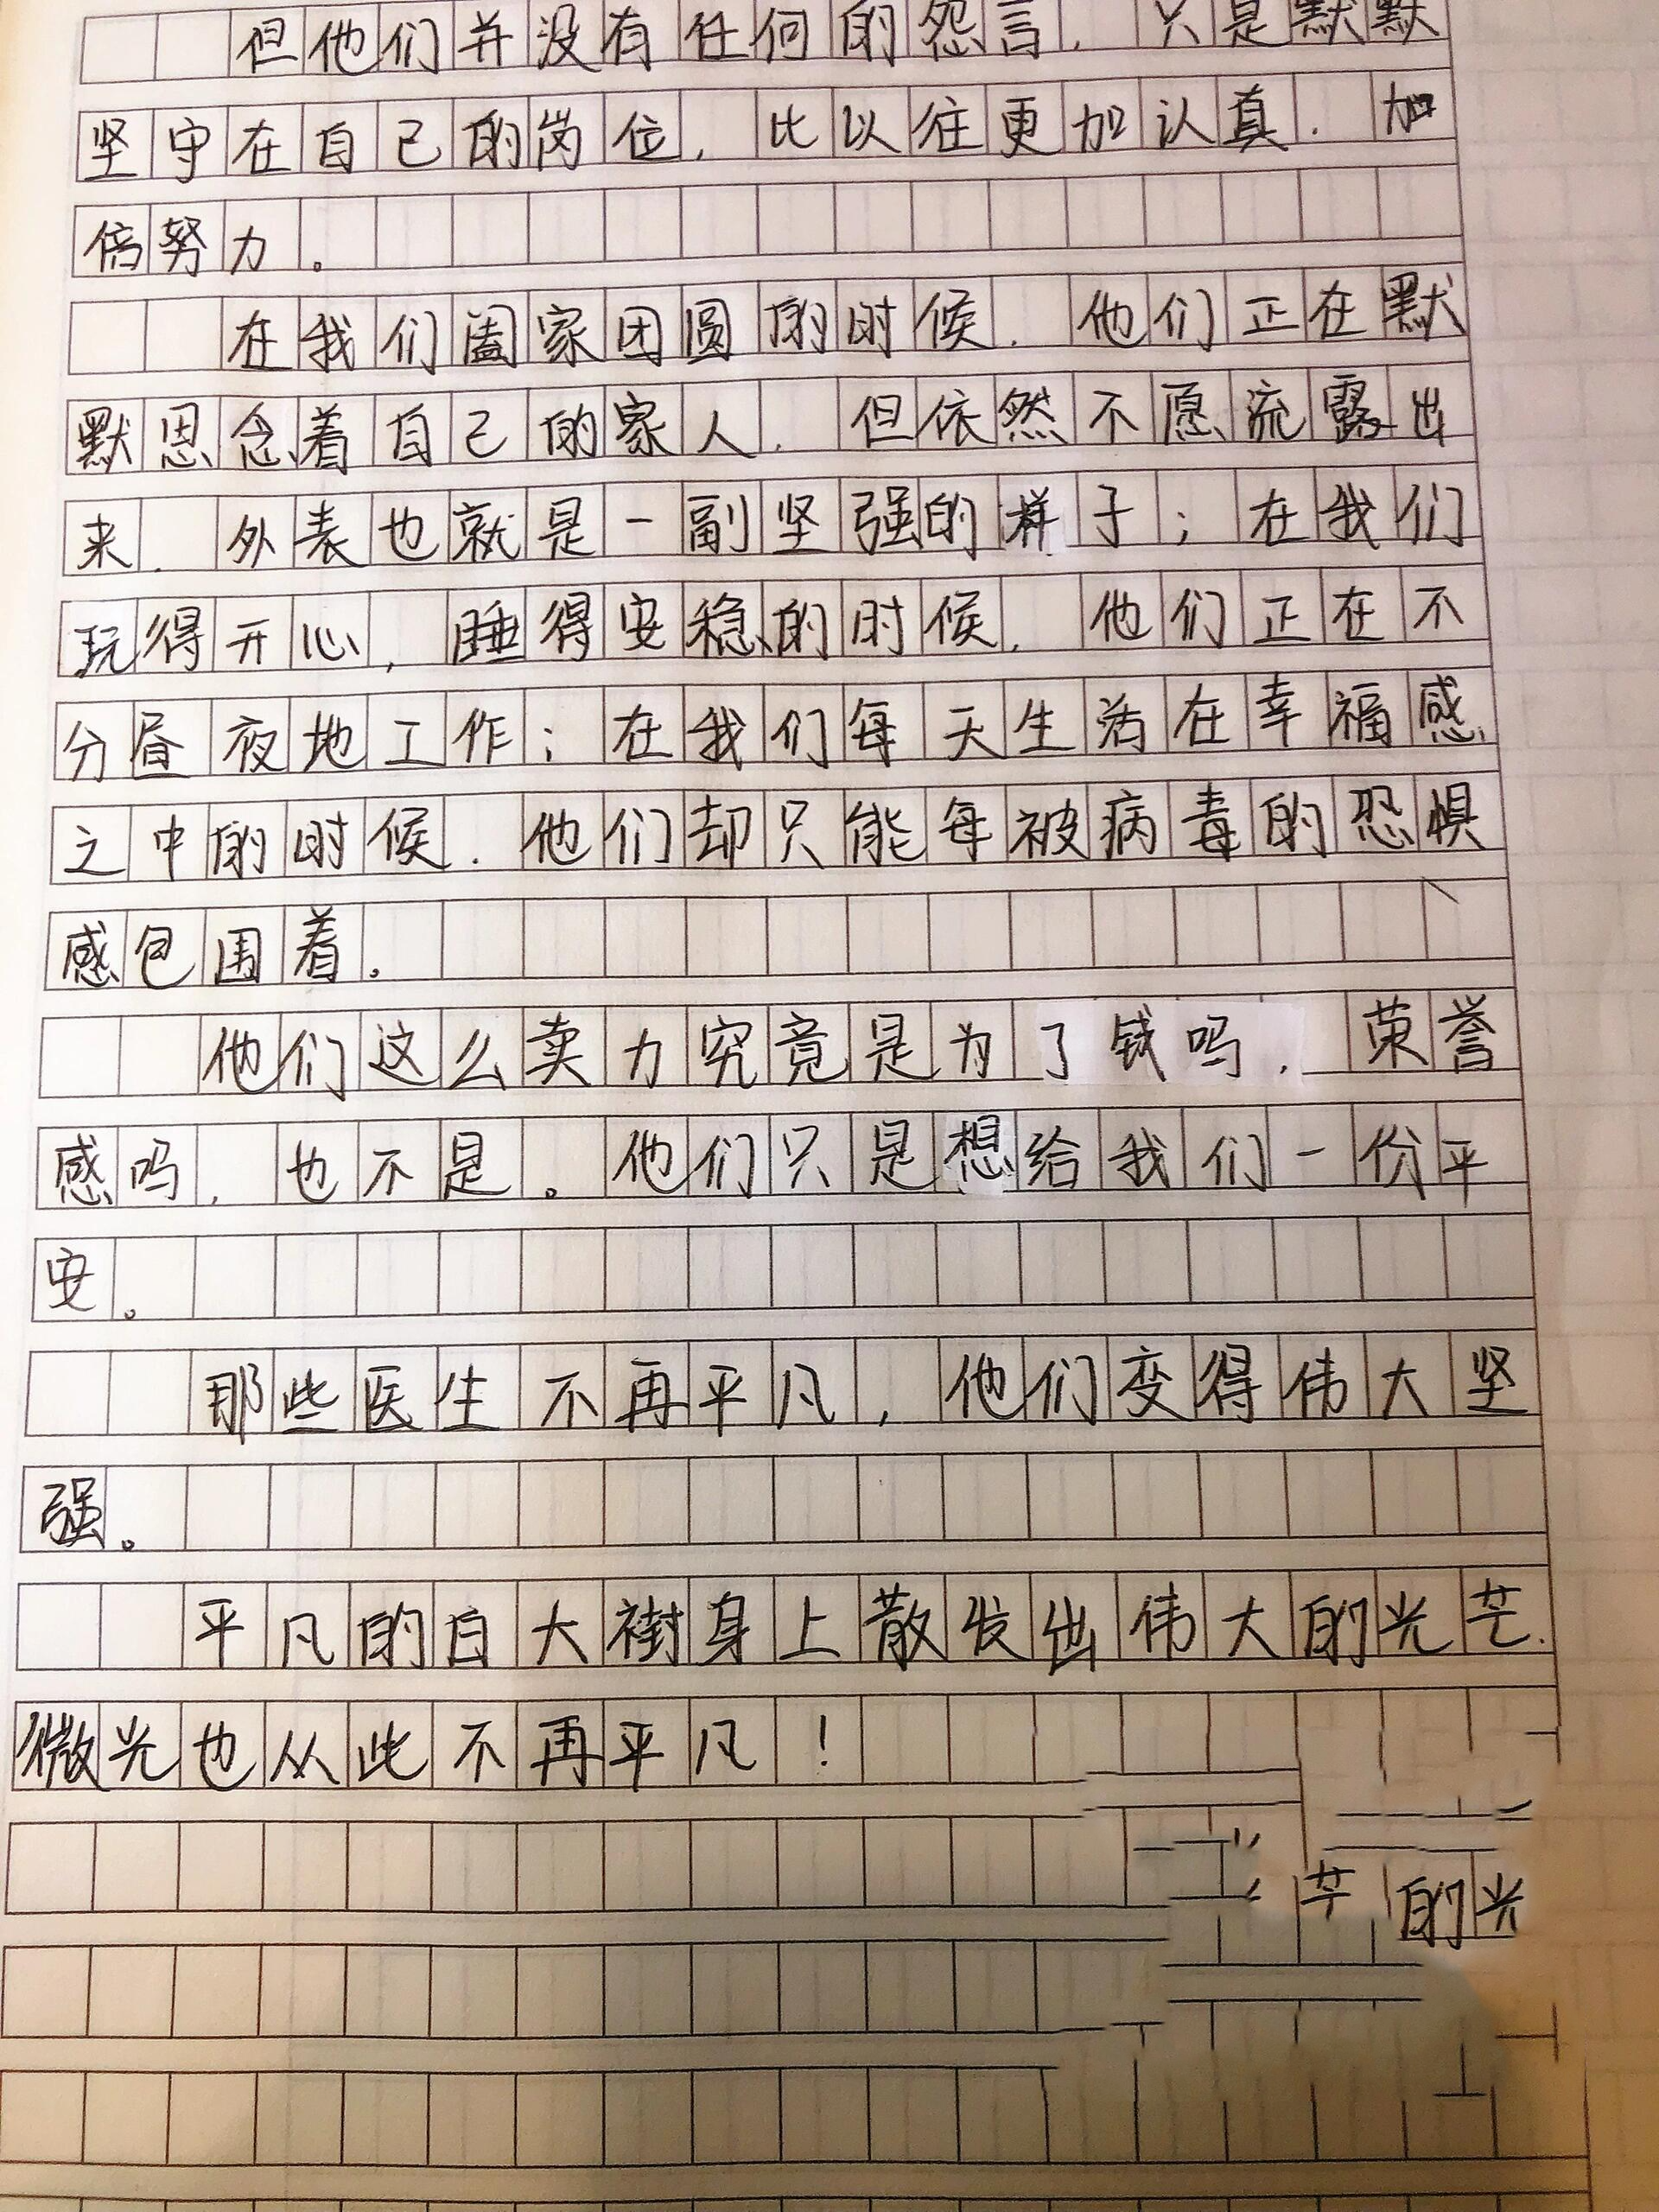 但他们并没有任何的怨言，只是默默
坚守在自己的岗位，比以往更加认真，加
倍努力。
在我们阖家团圆的时候，他们正在默
默思念着自己的家人，但依然不愿流露出
来，外表也就是一副坚强的样子；在我们
玩得开心，睡得安稳的时候，他们正在不
分昼夜地工作；在我们每天生活在幸福感
之中的时候，他们却只能每被病毒的恐惧
感包围着。
他们这么卖力究竟是为了钱吗，荣誉
感吗，也不是。他们只是想给我们一份平
安。
那些医生不再平凡，他们变得伟大坚
强。
平凡的白大褂身上散发出伟大的光芒，
微光也从此不再平凡！
芒的光